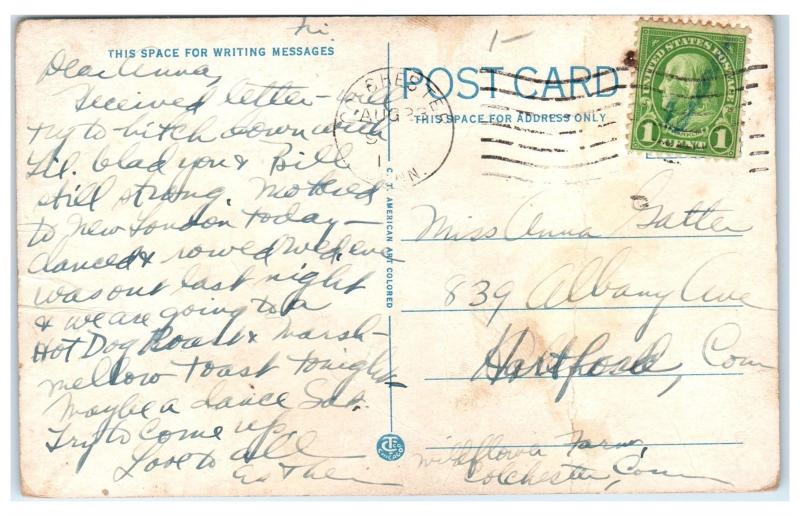 Fri.
THIS SPACE FOR WRITING MESSAGES
Dear Anna,
Received letter - will
try to hitch down with
Lil. Glad you & Bill
still strong. Motored
to New London today -
danced & rowed Wed. eve
was out last night
& we are going to a
Hot Dog Roast & Marsh-
mellow Toast tonight -
Maybe a dance Sat.
Try to come up
Love to all
Esther
C. T. AMERICAN ART COLORED
CHICAGO
1-
POST CARD
THIS SPACE FOR ADDRESS ONLY
COLCHESTER
AUG
CONN.
UNITED STATES POSTAGE
1 1
Miss Anna Gatter
839 Albany Ave
Hartford, Conn
Wildflower Farm,
Colchester, Conn